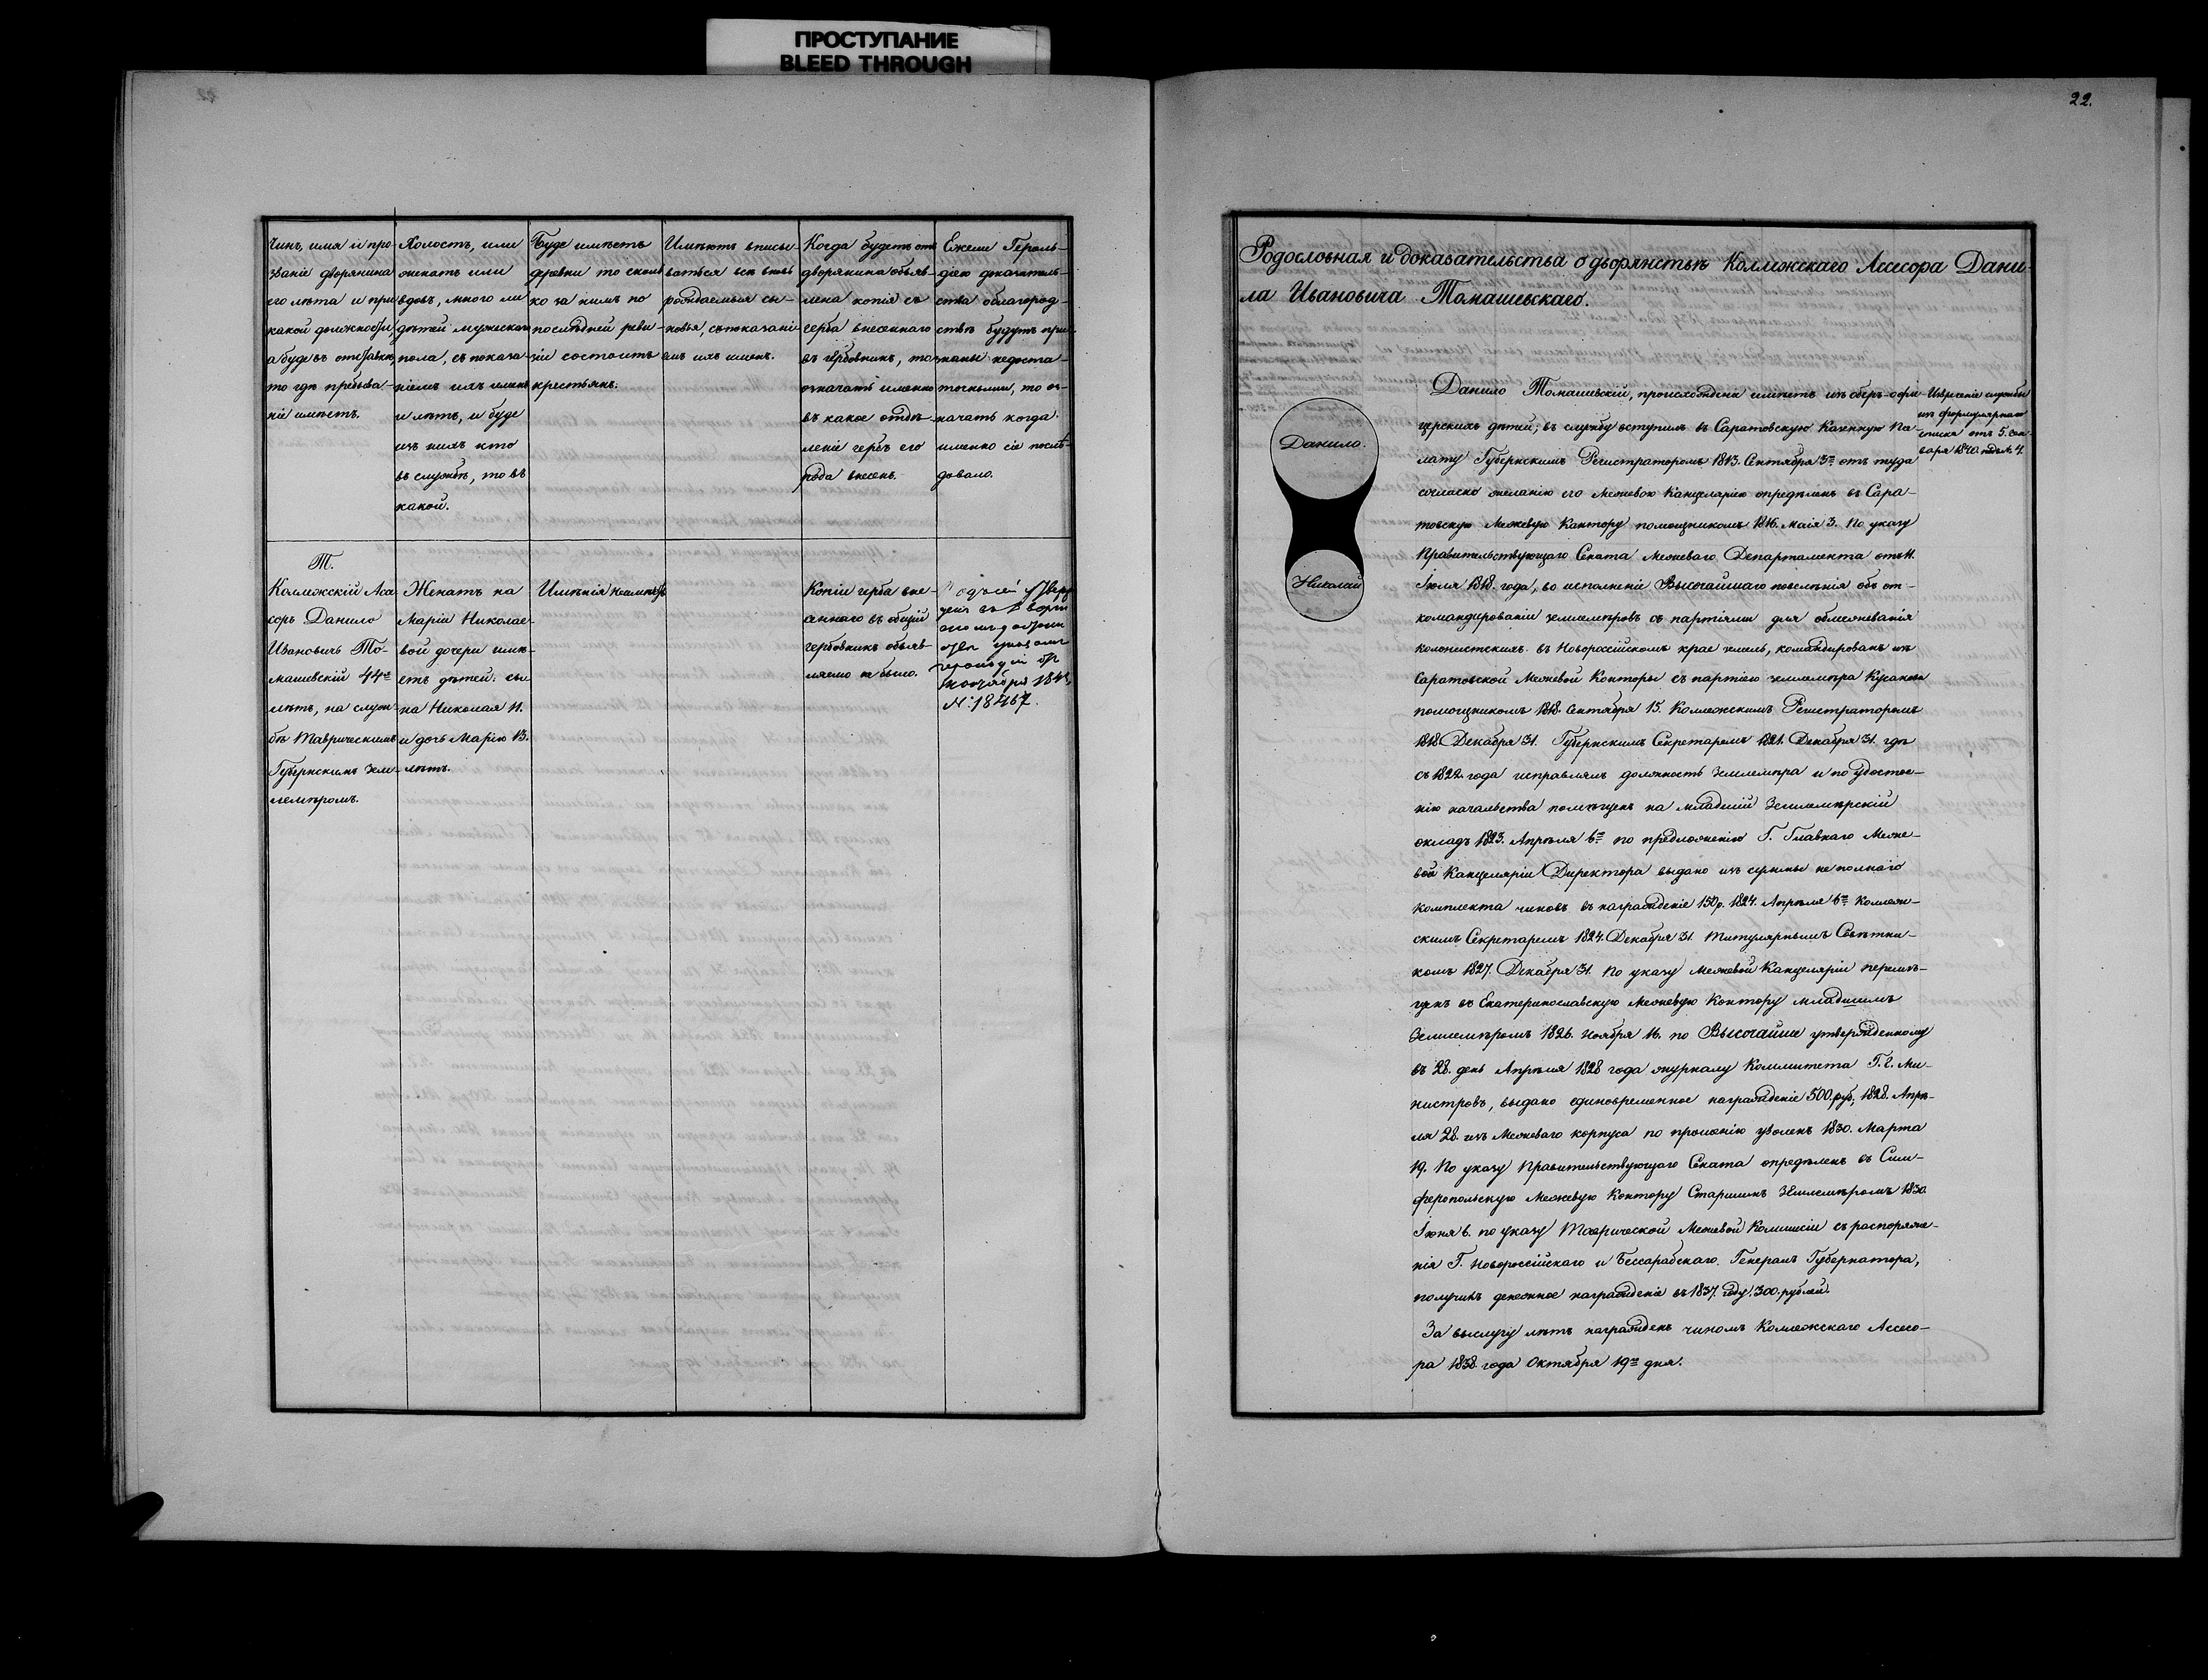 ПРОСТУПАНИЕ
BLEED THROUGH
22.
Чинъ, имя и про-
званіе дворянина
его лѣта и при
какой должности,
а буде въ отставкѣ,
то гдѣ пребыва-
ніе имѣетъ.
Холостъ, или
женатъ или
вдовъ, много ли
дѣтей мужескаго
пола, съ показа-
ніемъ ихъ именъ
и лѣтъ, и буде
изъ нихъ кто
въ службѣ, то въ
какой.
Буде имѣетъ
деревни то сколь-
ко за нимъ по
послѣдней реви-
зіи состоитъ
крестьянъ.
Имѣютъ вписы-
ваться всѣ вновь
рождаемыя сы-
новья, съ показані-
емъ ихъ именъ.
Когда будетъ отъ
дворянина объяв-
лена копія съ
герба внесеннаго
въ гербовникъ, то
означать именно
въ какое отдѣ-
леніе гербъ его
рода внесенъ.
Ежели Героль-
діею доказатель-
ства о благород-
ствѣ будутъ при-
знаны недоста-
точными, то оз-
начать когда
именно сіе послѣ-
довало.
Т.
Коллежскій Асе-
соръ Данило
Ивановичъ То-
машевскій 44хъ
лѣтъ, на служ-
бѣ Таврическимъ
Губернскимъ Зем-
лемѣромъ.
Женатъ на
Маріи Николае-
вой дочери имѣ-
етъ дѣтей: сы-
на Николая 11.
и дочь Марію 13.
лѣтъ.
Имѣнія неимѣетъ
Копіи герба вне-
сеннаго въ общій
гербовникъ объяв-
ляемо не было.
ноября 184
№ 18467.
Родословная и доказательства о дворянствѣ Коллежскаго Ассесора Дани-
ла Ивановича Томашевскаго.
Данило.
Николай
Данило Томашевскій, происхожденіе имѣетъ изъ оберъ-офи-
церскихъ дѣтей; въ службу вступилъ въ Саратовскую Казенную Па-
лату Губернскимъ Регистраторомъ 1813. Сентября 3го отъ туда
согласно желанію его Межевою Канцеляріею опредѣленъ въ Сара-
товскую Межевую Кантору помощникомъ 1816. Маія 3. По указу
Правительствующаго Сената Межеваго Департамента отъ 11.
Іюля 1818. года, во исполненіе Высочайшаго повелѣнія объ от-
командированіи землемѣровъ съ партіями для обмежеванія
колонистскихъ въ Новороссійскомъ краѣ земель, командированъ изъ
Саратовской Межевой Канторы съ партіею землемѣра Кусакова
помощникомъ 1818. Сентября 15. Коллежскимъ Регистраторомъ
1818 Декабря 31. Губернскимъ Секретаремъ 1821. Декабря 31. гдѣ
съ 1822. года исправлялъ должность Землемѣра и по удостое-
нію начальства помѣщенъ на младшій Землемѣрскій
окладъ 1823. Апрѣля 6го по предложенію Г. Главнаго Меже-
вой Канцеляріи Директора выдано изъ суммы не полнаго
комплекта чиновъ въ награжденіе 150р. 1824. Апрѣля 6го Коллеж-
скимъ Секретаремъ 1824. Декабря 31. Титулярнымъ Совѣтни-
комъ 1827. Декабря 31. По указу Межевой Канцеляріи перемѣ-
щенъ въ Екатеринославскую Межевую Контору младшимъ
Землемѣромъ 1826. Ноября 16. по Высочайше утвержденному
въ 28. день Апрѣля 1828 года журналу Коммитета Г. г. Ми-
нистровъ, выдано единовременное награжденіе 500. руб, 1828. Апрѣ-
ля 28. изъ Межеваго корпуса по прошенію уволенъ 1830. Марта
19. По указу Правительствующаго Сената опредѣленъ въ Сим-
феропольскую Межевую Контору Старшимъ Землемѣромъ 1830.
Іюня 6. по указу Таврической Межевой Коммисіи съ распоряже-
нія Г. Новороссійскаго и Бессарабскаго Генералъ Губернатора,
получилъ денежное награжденіе въ 1837. году 300. рублей.
За выслугу лѣтъ награжденъ чиномъ Коллежскаго Ассесо-
ра 1838. года Октября 19го дня.
Извлеченіе службы
изъ формулярнаго
списка отъ 5. Ген-
варя 1840. подъ № 4.